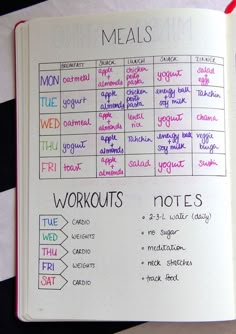 MEALS
BREAKFAST SNACK LUNCH SNACK DINNER
MON oatmeal apple + almonds chicken pesto pasta yogurt salad + egg
TUE yogurt apple + almonds chicken pesto pasta energy ball + soy milk Takchin
WED oatmeal apple + almonds lentil rice yogurt
THU yogurt apple + almonds Takchin energy balls + soy milk veggie burger
FRI toast apple + almonds salad yogurt Sushi
WORKOUTS
TUE CARDIO
WED WEIGHTS
THU CARDIO
FRI WEIGHTS
SAT CARDIO
NOTES
• 2-3 L water (daily)
• no sugar
• meditation
• neck stretches
• track food